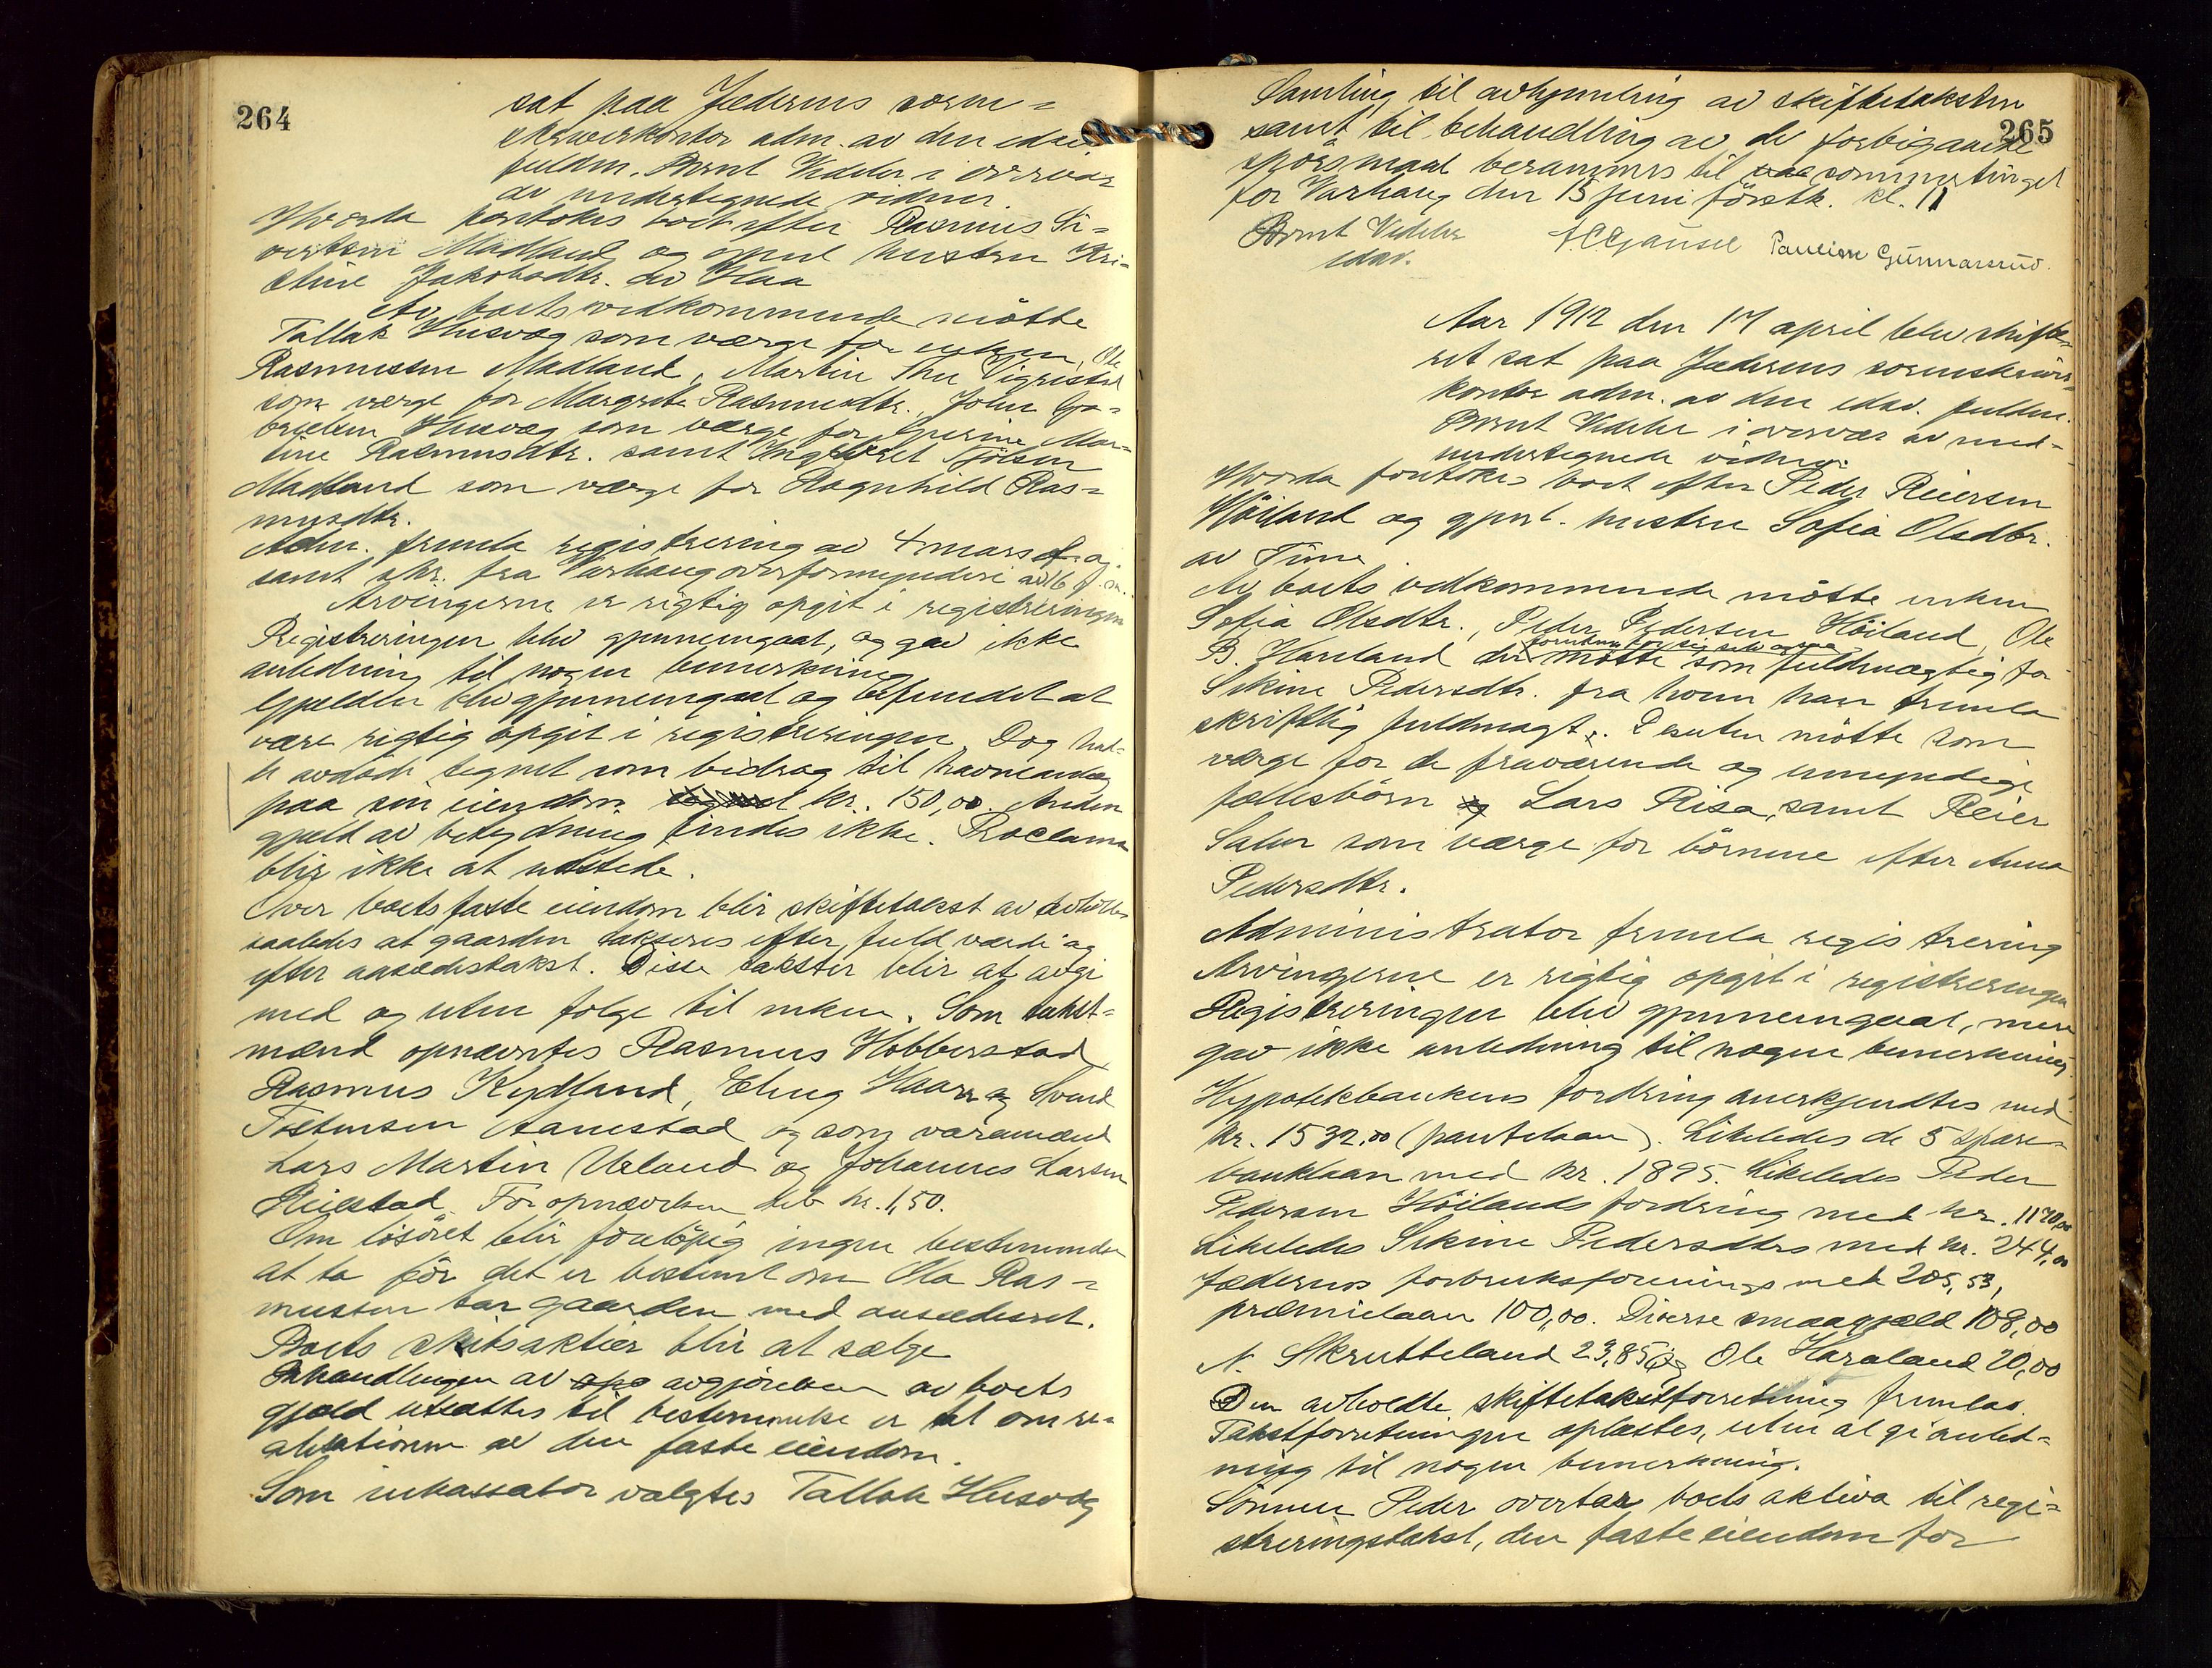 264
sat paa Jæderens soren=
skriverkontor adm. av den edsv.
fuldm. Bernt Vedeler i overvær
av undertegnede vidner.
Hvorda foretokes boet efter Rasmus Si=
vertsen Madland og gjenl. hustru Kri=
stine Jakobsdtr. av Haa
Av boets vedkommende møtte
Tallak Husvæg som værge for enken, Ole
Rasmussen Madland, Martin Thu Vigrestad
som værge for Margrete Rasmusdtr., John Ga=
brielsen Husvæg som værge for Gurine Mar=
tine Rasmusdtr. samt Ingebret Njølsen
Madland som værge for Ragnhild Ras=
musdtr.
Adm. fremla registrering av 4 mars d.a.
samt skr. fra Varhaug overformynderi av 16 f.m.
Arvingerne er rigtig opgit i registreringen
Registreringen blev gjennemgaat, og gav ikke
anledning til nogen bemerkning
Gjælden blev gjennemgaat og befundet at
være rigtig opgit i registreringen. Dog had=
de avdøde tegnet som bidrag til havneanlæg
paa sin eiendom kr. 150,00. Anden
gjæld av betydning findes ikke. Proclama
blir ikke at utstede.
Over boets faste eiendom blir skiftetakst av avholdes
saaledes at gaarden takseres efter fuld værdi og
efter aasædestakst. Disse takster blir at avgi
med og uten følge til enken. Som takst=
mænd opnævntes Rasmus Hobberstad
Rasmus Kydland, Elling Haarr og Svend
Tostensen Aanestad og som varamænd
Lars Martin Ueland og Johannes Larsen
Reiestad. For opnævelsen bet. kr. 1,50.
Om løsøret blir foreløpig ingen bestemmelse
at ta før det er bestemt om Ola Ras=
mussen tar gaarden med aasædesret.
Boets skibsaktier blir at sælge
Behandlingen av opg avgjørelsen av boets
gjæld utsættes til bestemmelse er tat om re=
alisationen av den faste eiendom.
Som inkassator valgtes Tallak Husvæg
265
Samling til avhjemling av skiftetaksten
samt til behandling av de forbigaaende
spørsmaal berammes til vaa sommertinget
for Varhaug den 15 juni førstk. kl. 11
Bernt Vedeler A C Gausel Pauline Gunnarsrud.
edsv.
Aar 1912 den 17 april blev skifte=
ret sat paa Jæderens sorenskriver=
kontor adm. av den edsv. fuldm.
Bernt Vedeler i overvær av med=
undertegnede vidner.
Hvorda foretokes boet efter Peder Reiersen
Høiland og gjenl. hustru Sofia Olsdtr.
av Time.
Av boets vedkommende møtte enken
Sofia Olsdtr., Peder Pedersen Høiland, Ole
foruten for sig selv ogsaa
B. Hareland der møtte som fuldmægtig for
Sikine Pedersdtr. fra hvem han fremla
skriftlig fuldmagt. Desuten møtte som
værge for de fraværende og umyndige
fællesbørn og Lars Risa, samt Reier
Salen som værge for børnene efter Anna
Pedersdtr.
Administrator fremla registrering
Arvingerne er rigtig opgit i registreringen
Registreringen blev gjennemgaat, men
gav ikke anledning til nogen bemerkning.
Hypotekbankens fordring anerkjendtes med
kr. 1532.00 (pantelaan). Likeledes de 5 spare=
banklaan med kr. 1895. Likeledes Peder
Pedersen Høilands fordring med kr. 1170,00
Likeledes Sikine Pedersdtrs med kr. 244,00
Jæderens forbruksforenings med 205,53,
præmielaan 100,00. Diverse smaagjæld 108,00
N. Skrutteland 23,85 og Ole Haraland 20,00
Den avholdte skiftetakstforretning fremlas.
Takstforretningen oplæstes, uten at gi anled=
ning til nogen bemerkning.
Sønnen Peder overtar boets aktiva til regi=
streringstakst, den faste eiendom for